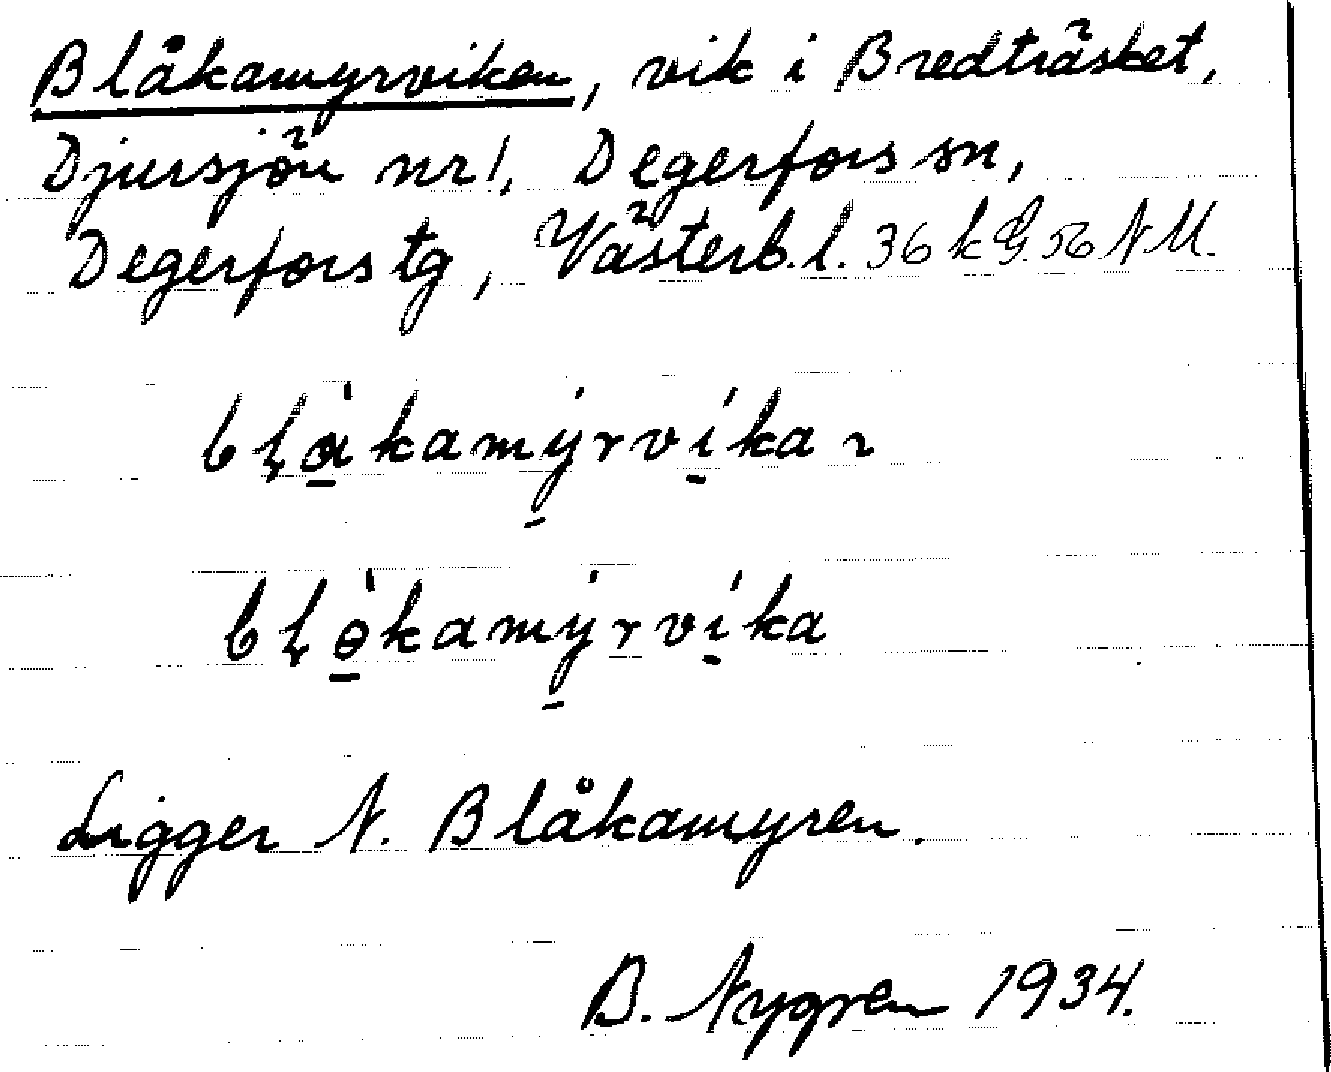 Blåkamyrviken, vik i Bredträsket,
Djursjön nr 1, Degerfors sn,
Degerfors tg, Västerb. l. 36 k G. 56 N M.
blɑ̀kamýrvíkan
blòkamýrvíka
Ligger N. Blåkamyren.
B. Nygren 1934.